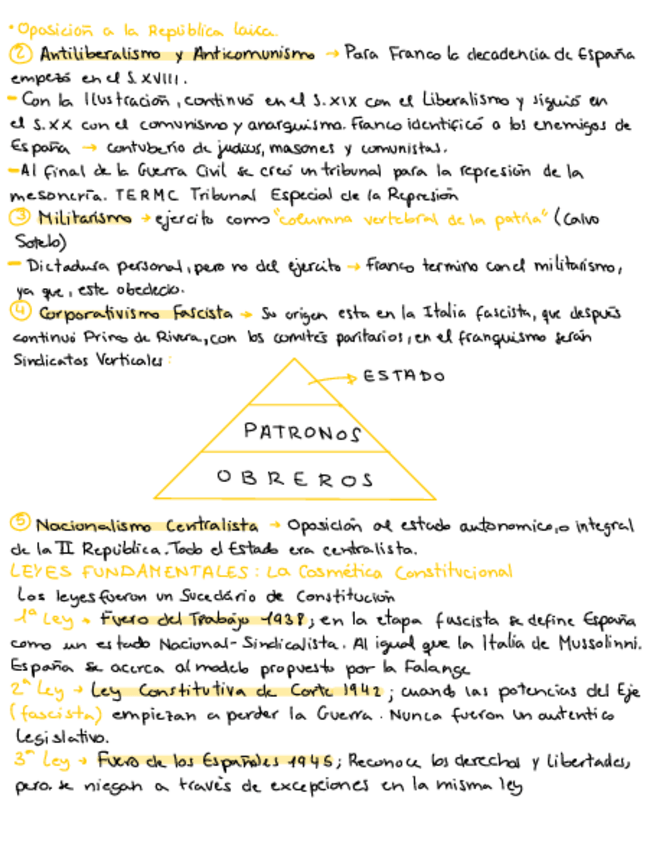 • Oposición a la República laica.
② Antiliberalismo y Anticomunismo → Para Franco la decadencia de España
empezó en el S. XVIII.
- Con la Ilustración, continuó en el S. XIX con el Liberalismo y siguió en
el S. XX con el comunismo y anarquismo. Franco identificó a los enemigos de
España → contubernio de judíos, masones y comunistas.
- Al final de la Guerra Civil se creó un tribunal para la represión de la
masonería. TERMC Tribunal Especial de la Represión
③ Militarismo → ejercito como "columna vertebral de la patria" (Calvo
Sotelo)
- Dictadura personal, pero no del ejercito → Franco termino con el militarismo,
ya que, este obedecio.
④ Corporativismo Fascista → Su origen esta en la Italia fascista, que después
continuó Primo de Rivera, con los comités paritarios, en el franquismo serán
Sindicatos Verticales:
ESTADO
PATRONOS
OBREROS
⑤ Nacionalismo Centralista → Oposición al estado autonomico, o integral
de la II República. Todo el Estado era centralista.
LEYES FUNDAMENTALES: La Cosmética Constitucional
Las leyes fueron un Sucedário de Constitución
1ª Ley → Fuero del Trabajo 1938; en la etapa fascista se define España
como un estado Nacional-Sindicalista. Al igual que la Italia de Mussolinni.
España se acerca al modelo propuesto por la Falange
2ª Ley → Ley Constitutiva de Corte 1942; cuando las potencias del Eje
(fascista) empiezan a perder la Guerra. Nunca fueron un autentico
legislativo.
3ª Ley → Fuero de los Españoles 1945; Reconoce los derechos y libertades,
pero. se niegan a través de excepciones en la misma ley